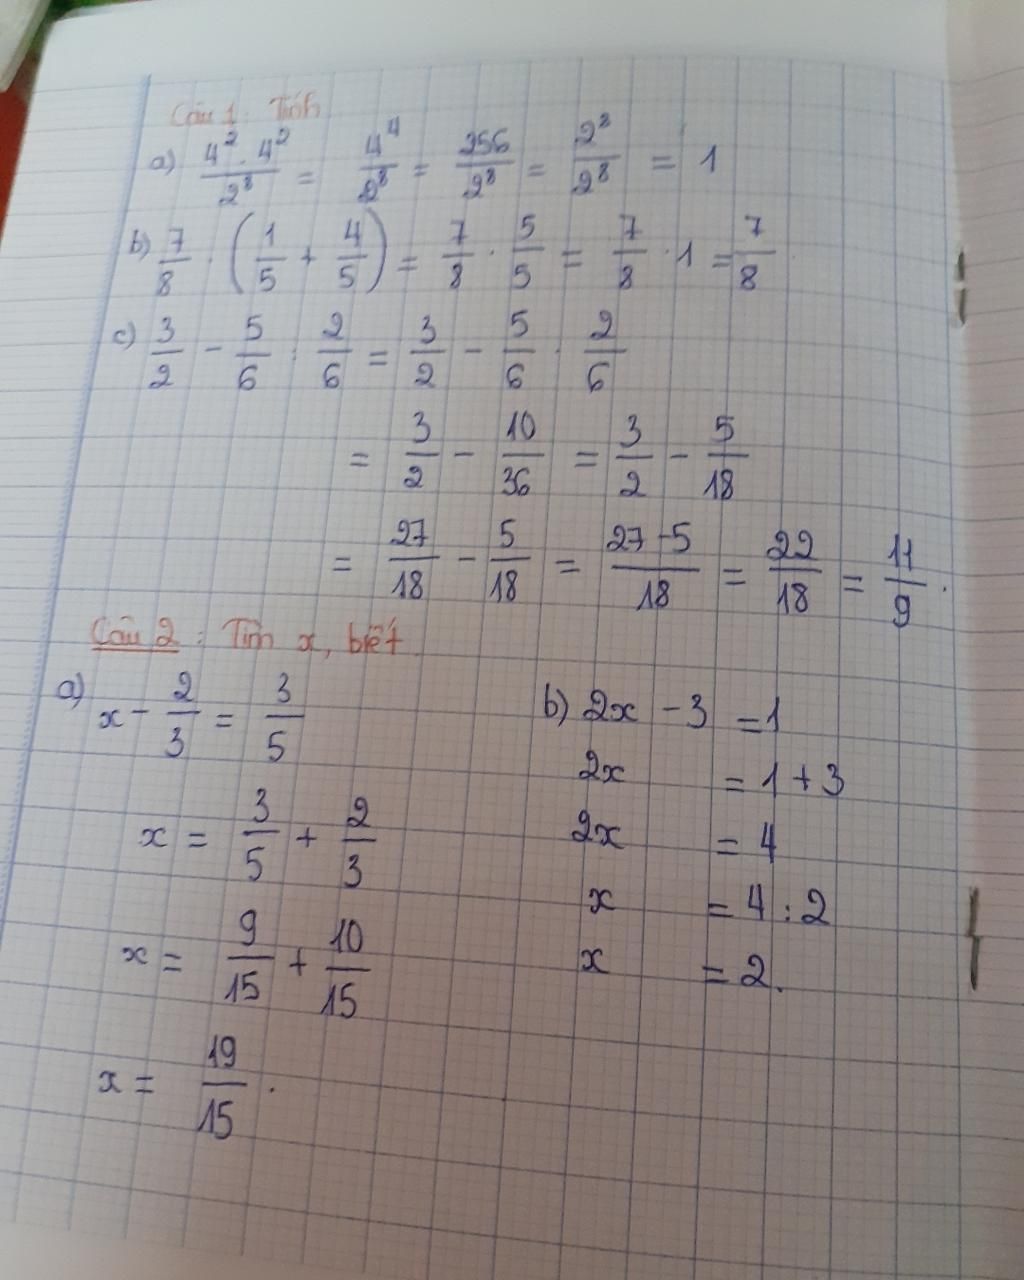 Câu 1: Tính
a) 4² . 4² / 2⁸ = 4⁴ / 2⁸ = 256 / 2⁸ = 2⁸ / 2⁸ = 1
b) 7/8 . (1/5 + 4/5) = 7/8 . 5/5 = 7/8 . 1 = 7/8
c) 3/2 - 5/6 . 2/6 = 3/2 - 5/6 . 2/6
= 3/2 - 10/36 = 3/2 - 5/18
= 27/18 - 5/18 = 27-5/18 = 22/18 = 11/9.
Câu 2: Tìm x, biết
a) x - 2/3 = 3/5
x = 3/5 + 2/3
x = 9/15 + 10/15
x = 19/15.
b) 2x - 3 = 1
2x = 1 + 3
2x = 4
x = 4 : 2
x = 2.